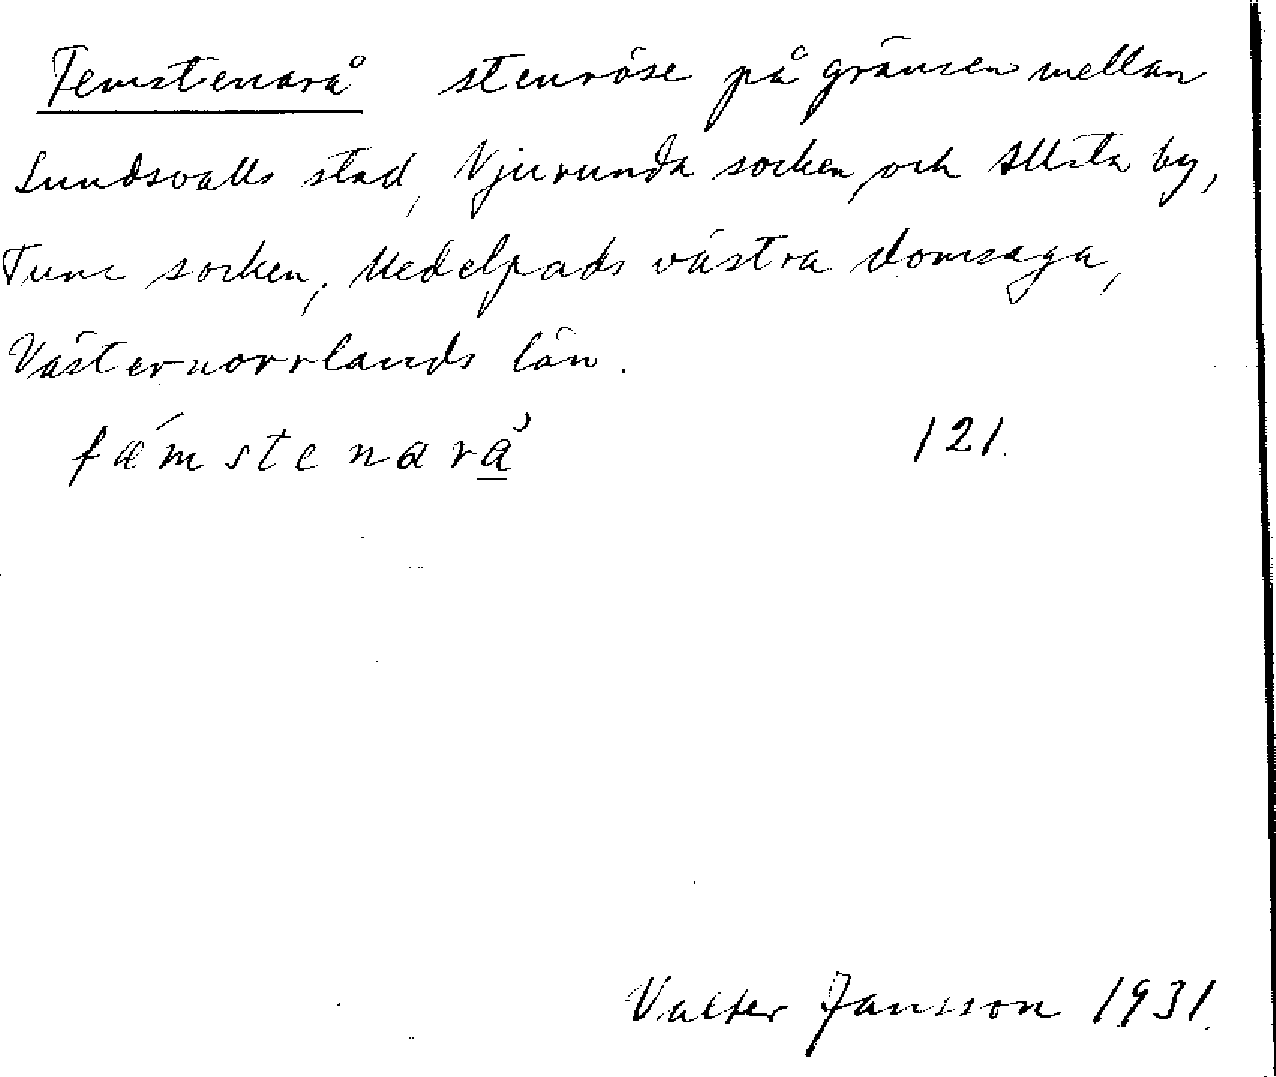 Femstenarå stenröse på gränsen mellan
Sundsvalls stad, Njurunda socken och Allsta by,
Tuna socken, Medelpads västra domsaga,
Västernorrlands län.
fæ´mstenarå̀ 121.
Valter Jansson 1931.